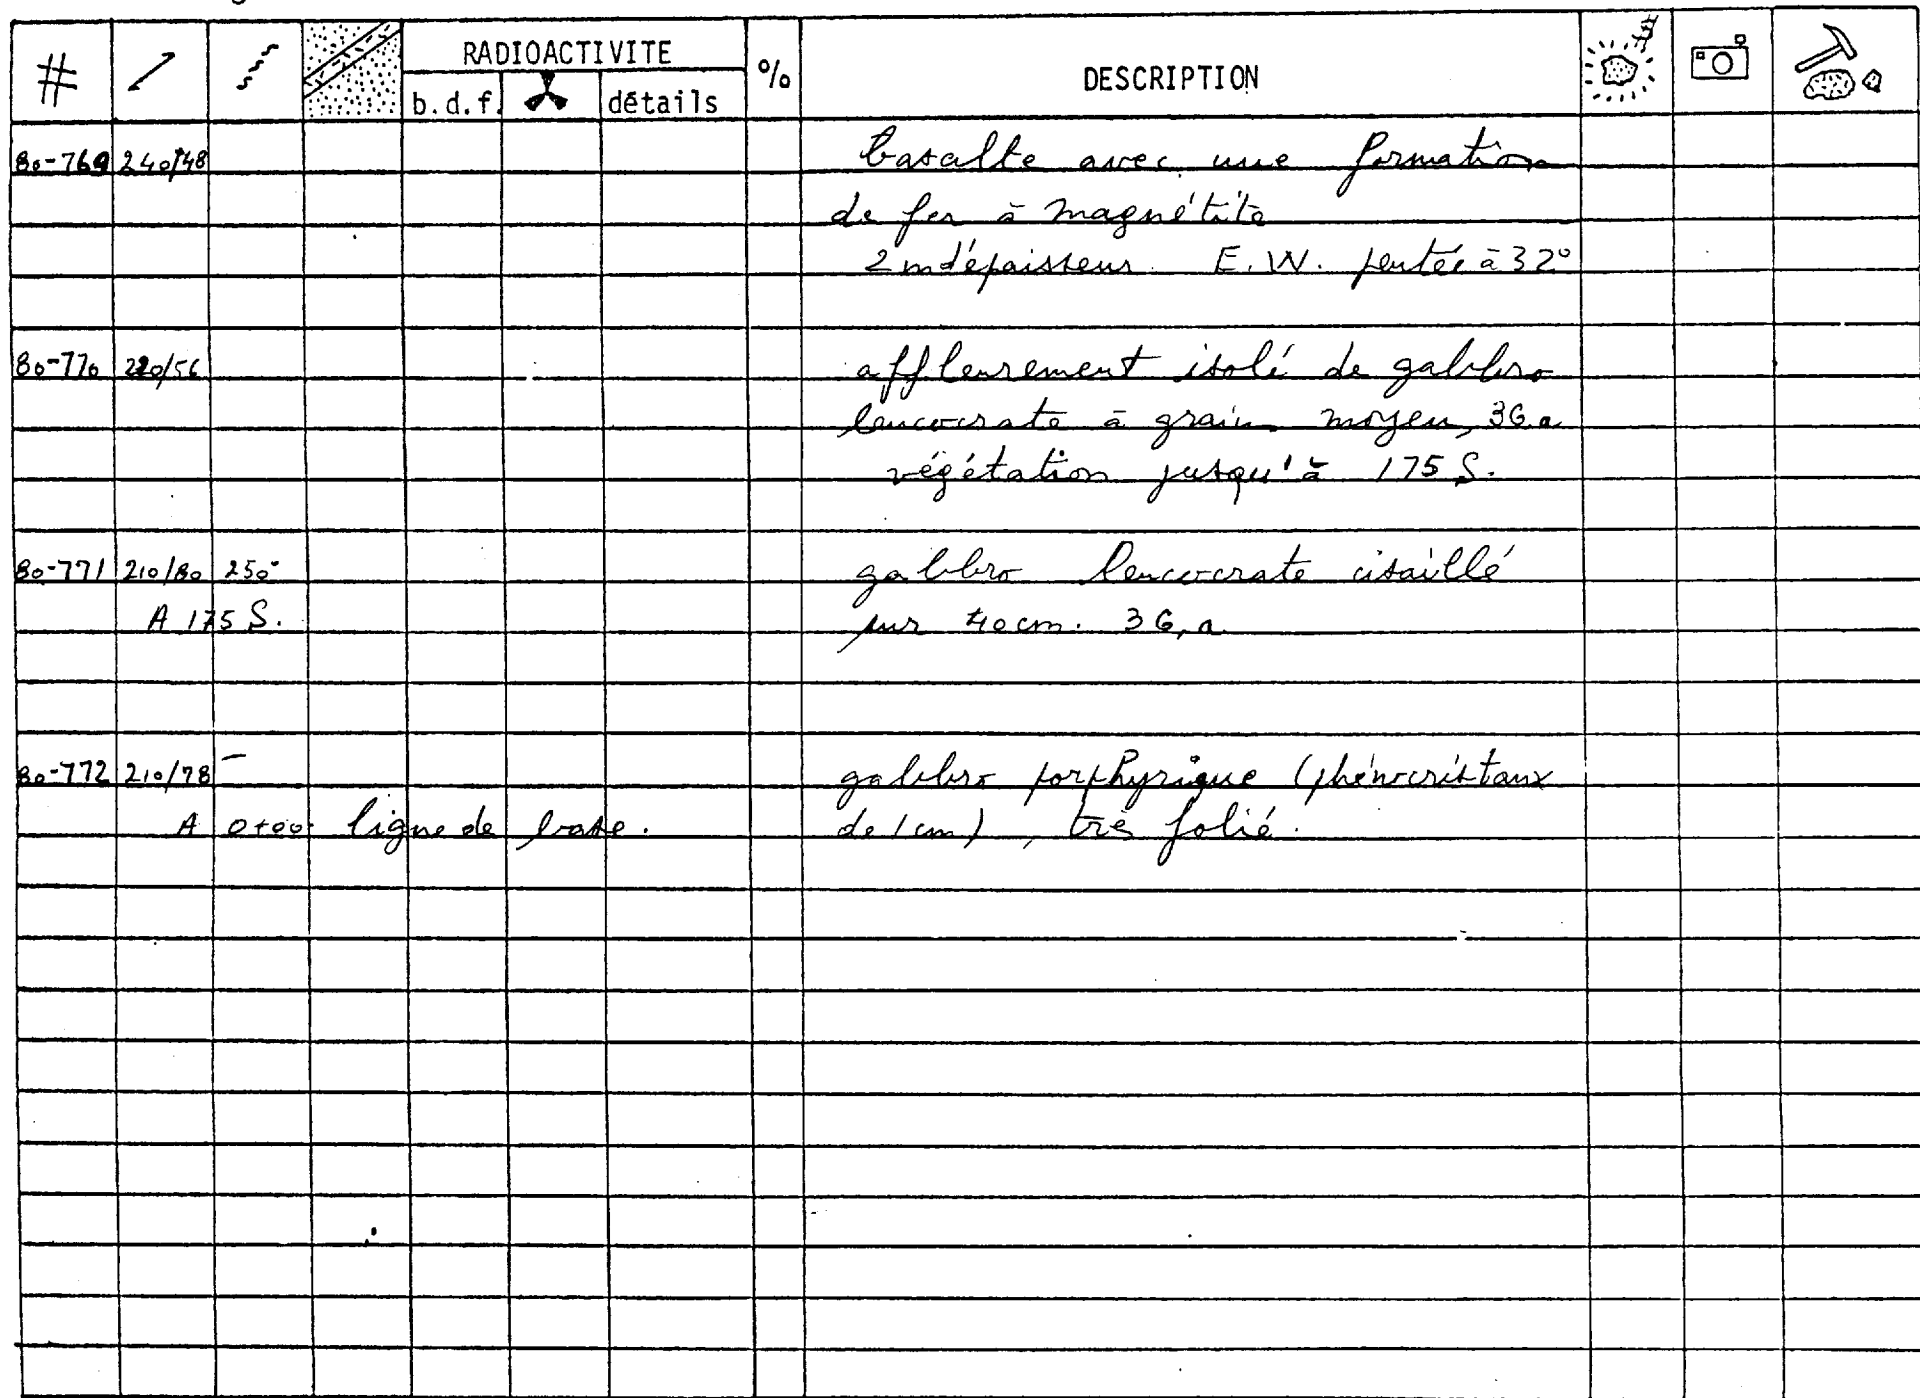 # RADIOACTIVITE % DESCRIPTION
b.d.f. détails
80-769 240/48 basalte avec une formation
de fer à magnétite
2m d'épaisseur E.W. pentée à 32°
80-770 220/56 affleurement isolé de gabbro
leucocrate à grain moyen, 3G,a
végétation jusqu'à 175 S.
80-771 210/80 250° gabbro leucocrate cisaillé
A 175 S. sur 40 cm. 3G,a
80-772 210/78 — gabbro porphyrique (phénocristaux
A 0+00 ligne de base. de 1 cm), très folié.